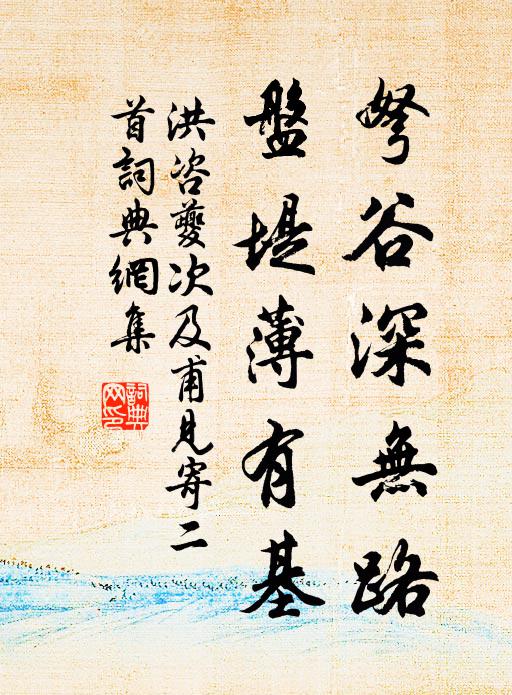 弩谷深無路
盤堤薄有基
洪咨夔次及甫見寄二
首詞典網集
詞典網印